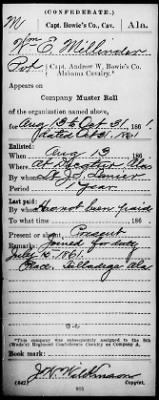 (CONFEDERATE.)
M Capt. Bowie's Co., Cav. Ala.
Wm E. Millinder
Pvt, Capt. Andrew W. Bowie's Co. Alabama Cavalry.*
Appears on
Company Muster Roll
of the organization named above,
for Aug 13 to Oct 31, 1861.
dated Oct 31, 1861
Enlisted:
When Aug 13, 186 .
Where At Decatur, Ala
By whom Lt. J. S. Lanier
Period 1 year
Last paid:
By whom Has not been paid
To what time , 186 .
Present or absent, Present
Remarks: Joined for duty
July 15, 1861.
Talladega Ala
*This company was subsequently assigned to the 8th
(Wade's) Regiment Confederate Cavalry as Company A.
Book mark:
J. W. Wilkinson
(642) Copyist.